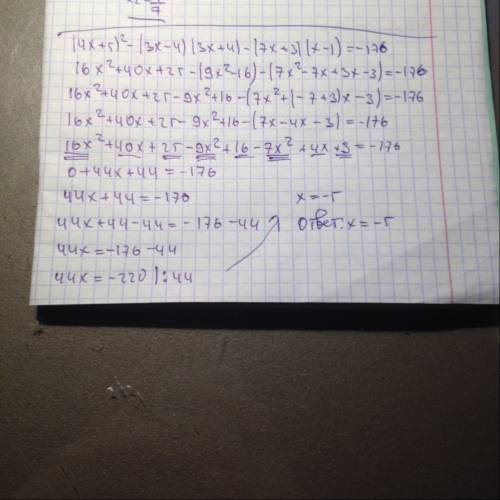 (4x+5)²-(3x-4)(3x+4)-(7x+3)(x-1)=-176
16x²+40x+25-(9x²-16)-(7x²-7x+3x-3)=-176
16x²+40x+25-9x²+16-(7x²+(-7+3)x-3)=-176
16x²+40x+25-9x²+16-(7x-4x-3)=-176
16x²+40x+25-9x²+16-7x²+4x+3=-176
0+44x+44=-176
44x+44=-176
44x+44-44=-176-44
44x=-176-44
44x=-220 |:44
x=-5
Ответ: x=-5